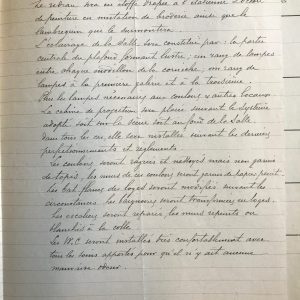 Le rideau sera en étoffe drapée à l'italienne décoré
de peinture en imitation de broderie ainsi que le
lambrequin que le surmontera.
L'éclairage de la Salle sera constitué par : la partie
centrale du plafond formant lustre ; un rang de lampes
entre chaque modillon de la corniche ; un rang de
lampes à la première galerie et à la troisième.
Plus les lampes nécessaires aux couloirs et autres locaux.
La cabine de projection sera placée, suivant le système
adopté, soit sur la Scène soit au fond de la Salle.
Dans tous les cas, elle sera installée suivant les derniers
perfectionnements et règlements.
Les couloirs seront râgréés et nettoyés mais non garnis
de tapis, les murs de ces couloirs seront garnis de papiers peints.
Les bat-flancs des loges seront modifiés suivant les
circonstances. Les baignoires seront transformées en loges.
Les escaliers seront réparés, les murs repeints ou
blanchis à la colle.
Les W.C. seront installés très confortablement avec
tous les soins apportés pour qu'il n'y ait aucune
mauvaise odeur.